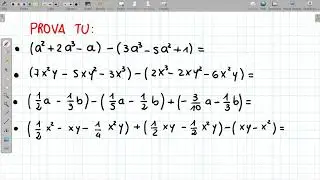 PROVA TU:
• (a² + 2a³ - a) - (3a³ - 5a² + 1) =
• (7x²y - 5xy² - 3x³) - (2x³ - 2xy² - 6x²y) =
• (1/2 a - 1/3 b) - (1/5 a - 1/2 b) + (- 3/10 a - 1/3 b) =
• (1/2 x² - xy - 1/4 x²y) + (1/2 xy - 1/2 x²y) - (xy - x²) =